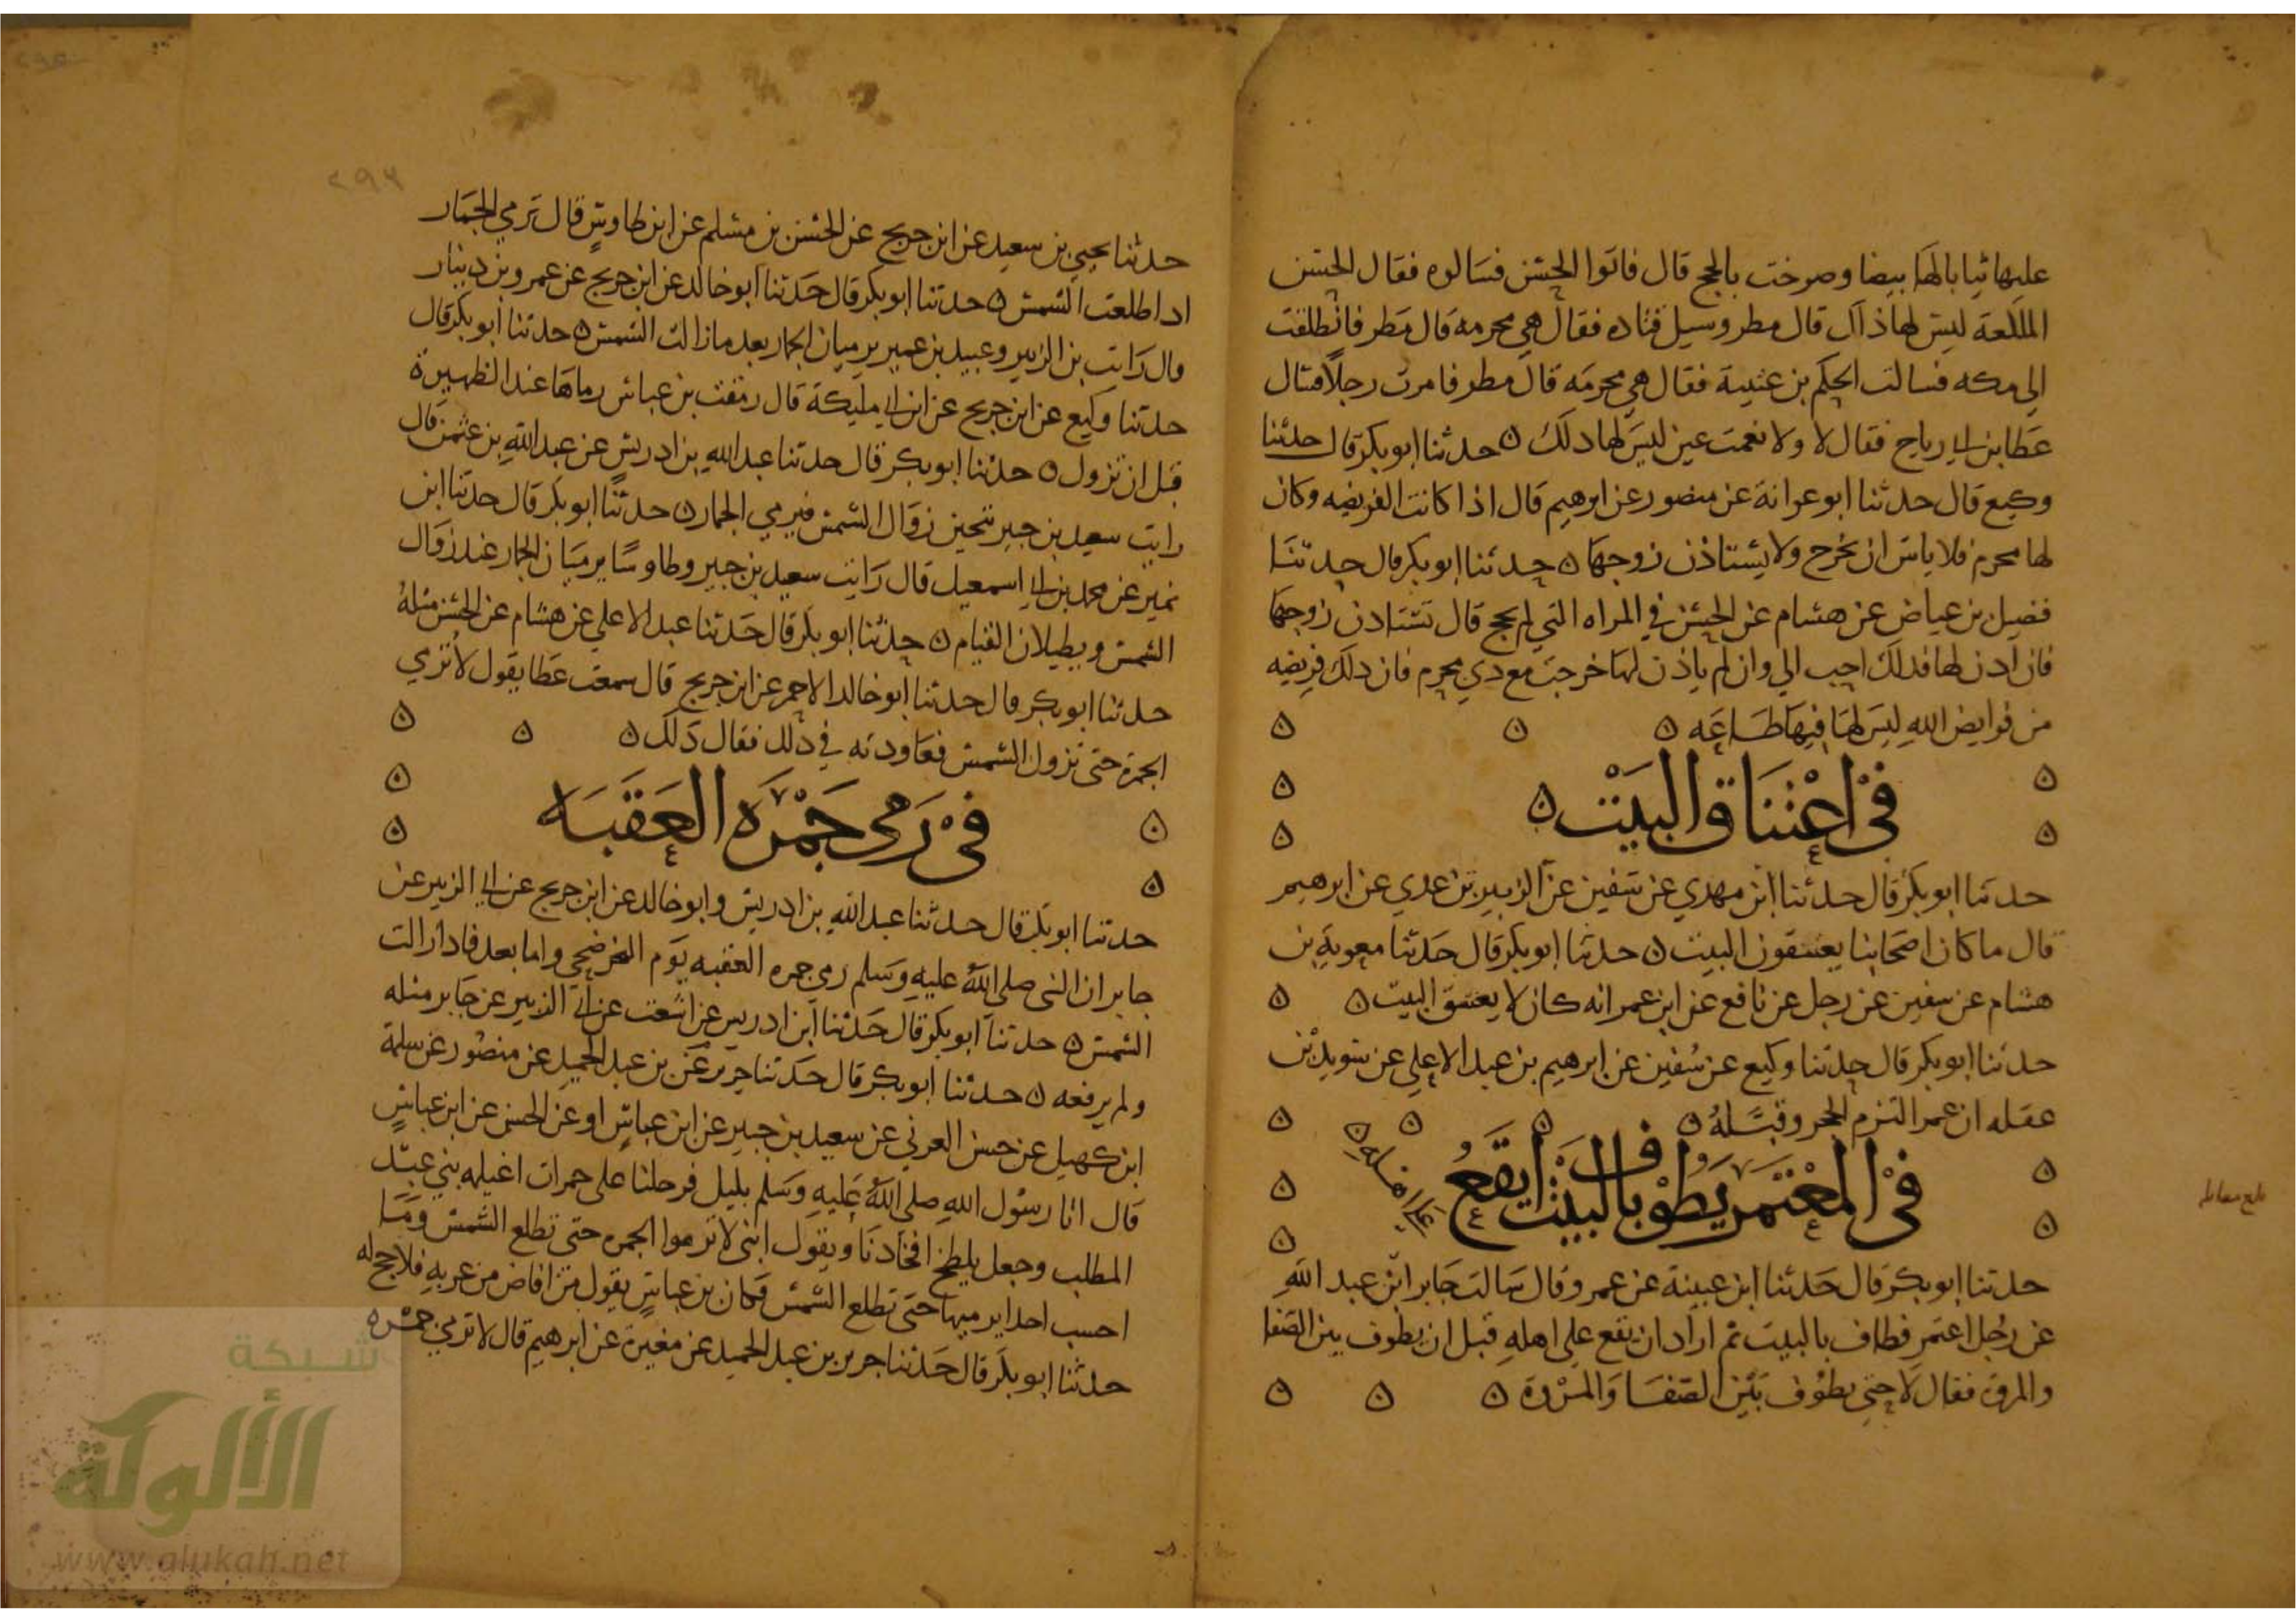 عليها ثيابا لها بيضا وصرخت بالحج قال فاتوا الحسن فسالوه فقال الحسن
اللكعة ليس لها ذاك قال مطر وسيل قتاده فقال هي محرمه قال مطر فانطلقت
الى مكه فسالت الحكم بن عتيبة فقال هي محرمه قال مطر فامرت رجلا فسال
عطا بن ابي رباح فقال لا ولا نعمت عين ليس لها ذلك ه حدثنا ابو بكر قال حدثنا
وكيع قال حدثنا ابو عوانة عن منصور عن ابرهيم قال اذا كانت الفريضه وكان
لها محرم فلا باس ان تخرج ولا يستاذن زوجها ه حدثنا ابو بكر قال حدثنا
فضيل بن عياض عن هشام عن الحسن في المراه التي لم تحج قال تستاذن زوجها
فان اذن لها فذلك احب الي وان لم ياذن لها خرجت مع ذي محرم فان ذلك فريضه
من فرايض الله ليس لها فيها طاعه ه ه ه
في اعتناق البيت ه
حدثنا ابو بكر قال حدثنا ابن مهدي عن سفين عن الزبير بن عدي عن ابرهيم
قال ما كان اصحابنا يعتنقون البيت ه حدثنا ابو بكر قال حدثنا معوية بن
هشام عن سفين عن رجل عن نافع عن ابن عمر انه كان لا يعتنق البيت ه ه
حدثنا ابو بكر قال حدثنا وكيع عن سفين عن ابرهيم بن عبد الاعلي عن سويد بن
غفله ان عمر التزم الحجر وقبله ه ه ه ه
في المعتمر يطوف بالبيت ايقع
على اهله
حدثنا ابو بكر قال حدثنا ابن عيينة عن عمرو قال سالت جابر ابن عبد الله
عن رجل اعتمر فطاف بالبيت ثم اراد ان يقع على اهله قبل ان يطوف بين الصفا
والمروة فقال لا حتى يطوف بين الصفا والمروة ه ه ه
بلغ مقابله
٢٩٣
حدثنا يحيى بن سعيد عن ابن جريج عن الحسن بن مسلم عن ابن طاوس قال ترمي الجمار
اذا طلعت الشمس ه حدثنا ابو بكر قال حدثنا ابو خالد عن ابن جريج عن عمرو بن دينار
قال رايت بن الزبير وعبيد بن عمير يرميان الجمار بعد ما زالت الشمس ه حدثنا ابو بكر قال
حدثنا وكيع عن ابن جريج عن ابن ابي مليكة قال رمقت بن عباس رماها عند الظهيرة
قبل ان تزول ه حدثنا ابو بكر قال حدثنا عبد الله بن ادريس عن عبد الله بن عثمن قال
رايت سعيد بن جبير تحين زوال الشمس فيرمي الجمار ه حدثنا ابو بكر قال حدثنا ابن
نمير عن محمد بن ابي اسمعيل قال رايت سعيد بن جبير وطاوسا يرميان الجمار عند زوال
الشمس ويطيلان القيام ه حدثنا ابو بكر قال حدثنا عبد الاعلي عن هشام عن الحسن مثله
حدثنا ابو بكر قال حدثنا ابو خالد الاحمر عن ابن جريج قال سمعت عطا يقول لا ترمي
الجمرة حتى تزول الشمس فعاودته في ذلك فقال ذلك ه ه ه
في رمى جمره العقبه
حدثنا ابو بكر قال حدثنا عبد الله بن ادريس وابو خالد عن ابن جريج عن ابي الزبير عن
جابر ان النبى صلى الله عليه وسلم رمي جمره العقبه يوم النحر ضحي واما بعد فاذا زالت
الشمس ه حدثنا ابو بكر قال حدثنا ابن ادريس عن اشعث عن ابي الزبير عن جابر مثله
ولم يرفعه ه حدثنا ابو بكر قال حدثنا جرير عن بن عبد الحميد عن منصور عن سلمة
ابن كهيل عن حسن العرني عن سعيد بن جبير عن ابن عباس او عن الحسن عن ابن عباس
قال اتانا رسول الله صلى الله عليه وسلم بليل فرحلنا على حمرات اغيلمه بني عبد
المطلب وجعل يلطح افخاذنا ويقول ابنى لا ترموا الجمره حتى تطلع الشمس وما
احسب احدا يرميها حتى تطلع الشمس فكان بن عباس يقول من افاض من عرنه فلا حج له
حدثنا ابو بكر قال حدثنا جرير بن عبد الحميد عن مغيرة عن ابرهيم قال لا ترمي جمره
شبكة
الألوكة
www.alukah.net